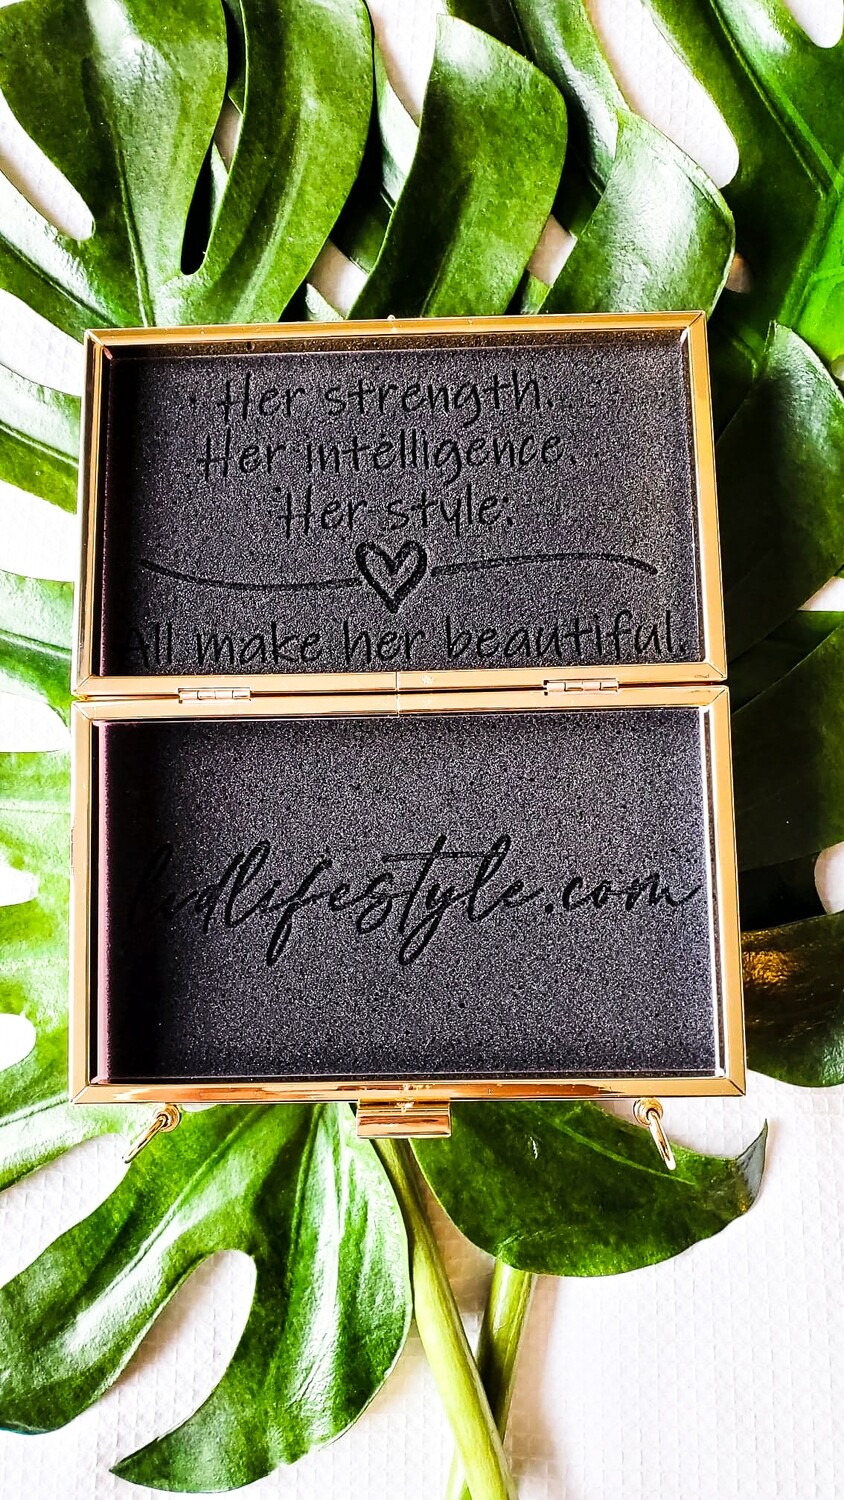 Her strength.
Her intelligence.
Her style:
All make her beautiful.